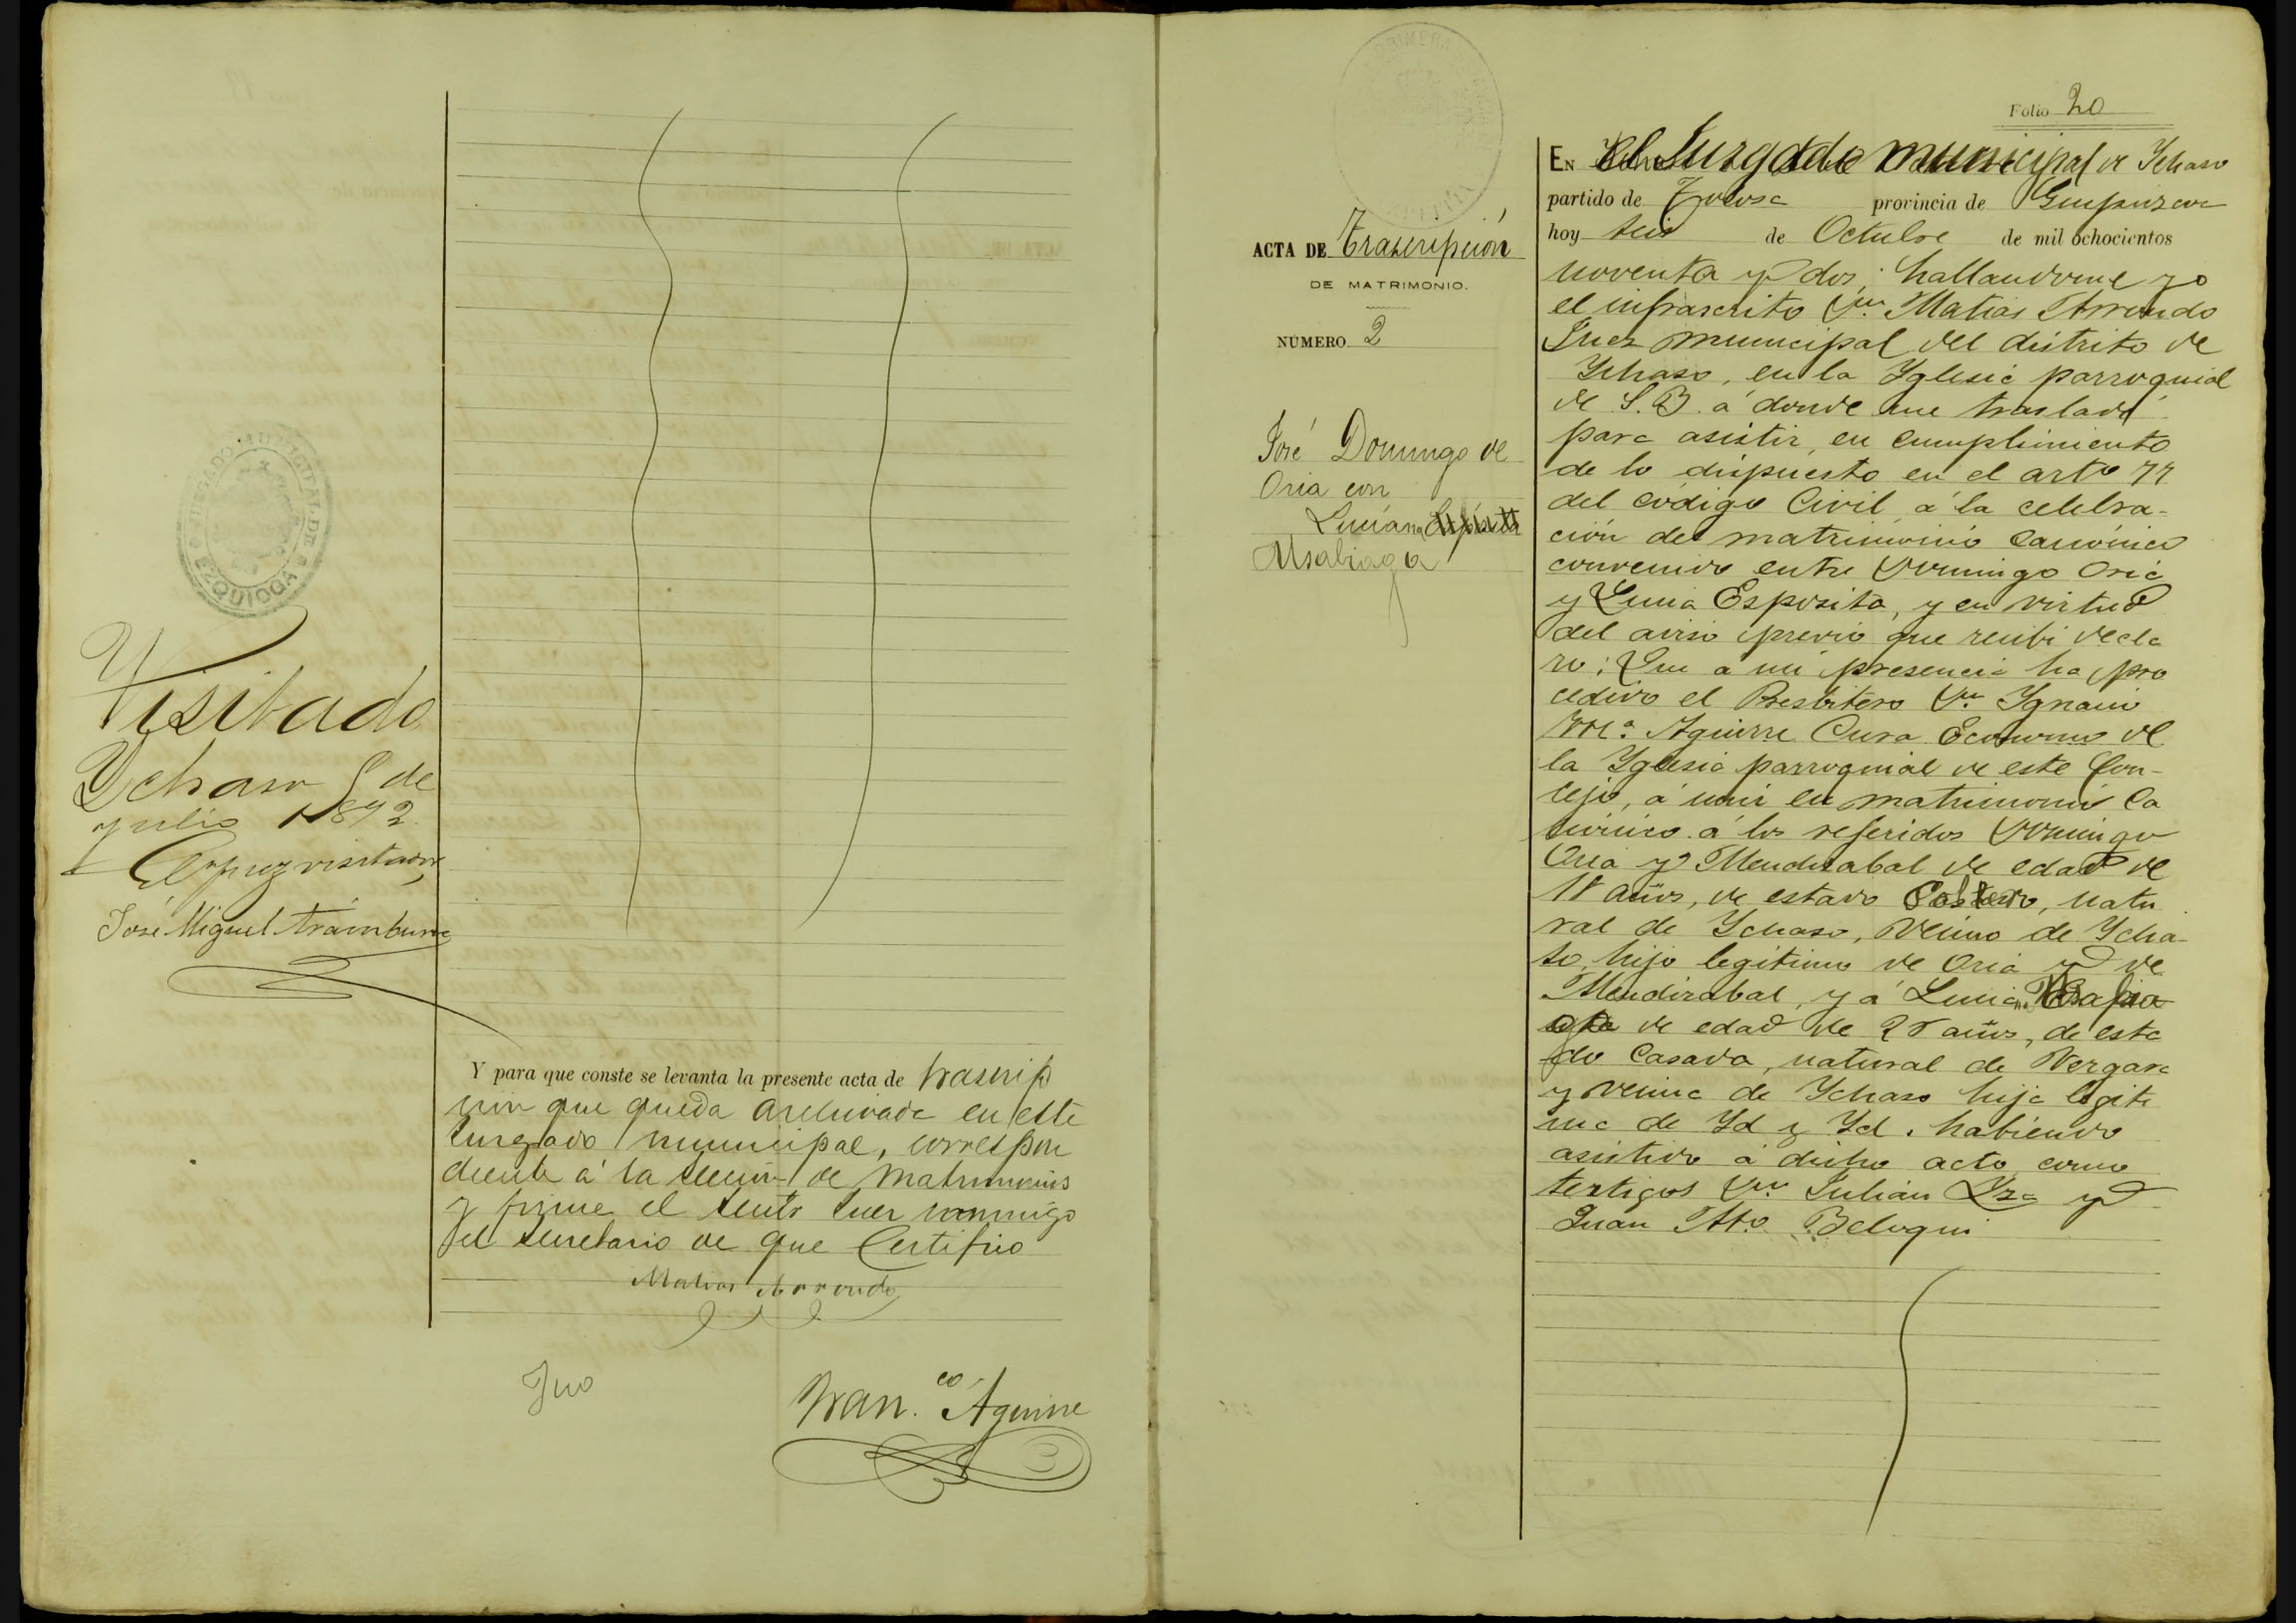 JUZGADO MUNICIPAL DE
EZQUIOGA
Visitado
Ychaso 5 de
Julio 1892
El Juez visitador
José Miguel Aramburu
Y para que conste se levanta la presente acta de trascrip
cion que queda archivada en este
Juzgado municipal, correspon
diente á la Sección de Matrimonios
y firma el Señor Juez conmigo
el Secretario de que Certifico
Matias Arrondo
Fran.co Aguirre
Folio 20
ACTA DE Trascripción
DE MATRIMONIO.
NÚMERO 2
José Domingo de
Oria con
Luciana
Usabiaga
EN el Juzgado municipal de Ychaso
partido de Tolosa provincia de Guipuzcoa
hoy seis de Octubre de mil ochocientos
noventa y dos; hallandome yo
el infrascrito Dn Matias Arrondo
Juez municipal del distrito de
Ychaso, en la Yglesia parroquial
de S.B. á donde me trasladé
para asistir, en cumplimiento
de lo dispuesto en el arto 77
del código Civil á la celebra-
ción del matrimonio Canónico
convenido entre Domingo Oria
y Lucia Esposita, y en virtud
del aviso previo que recibi decla
ro: Que a mi presencia ha pro
cedido el Presbitero Dn Ygnacio
Ma Aguirre Cura Economo de
la Yglesia parroquial de este Con-
cejo, á unir en matrimonio Ca
nónico á los referidos Domingo
Oria y Mendizabal de edad de
años, de estado Soltero, natu
ral de Ychaso, vecino de Ycha-
so, hijo legitimo de Oria y de
Mendizabal, y á Luciana Usabia
ga de edad de años, de esta
do Casada, natural de Vergara
y vecina de Ychaso hija legiti
ma de Yd y Yd. habiendo
asistido á dicho acto como
testigos Dn Julián y
Juan Beloqui